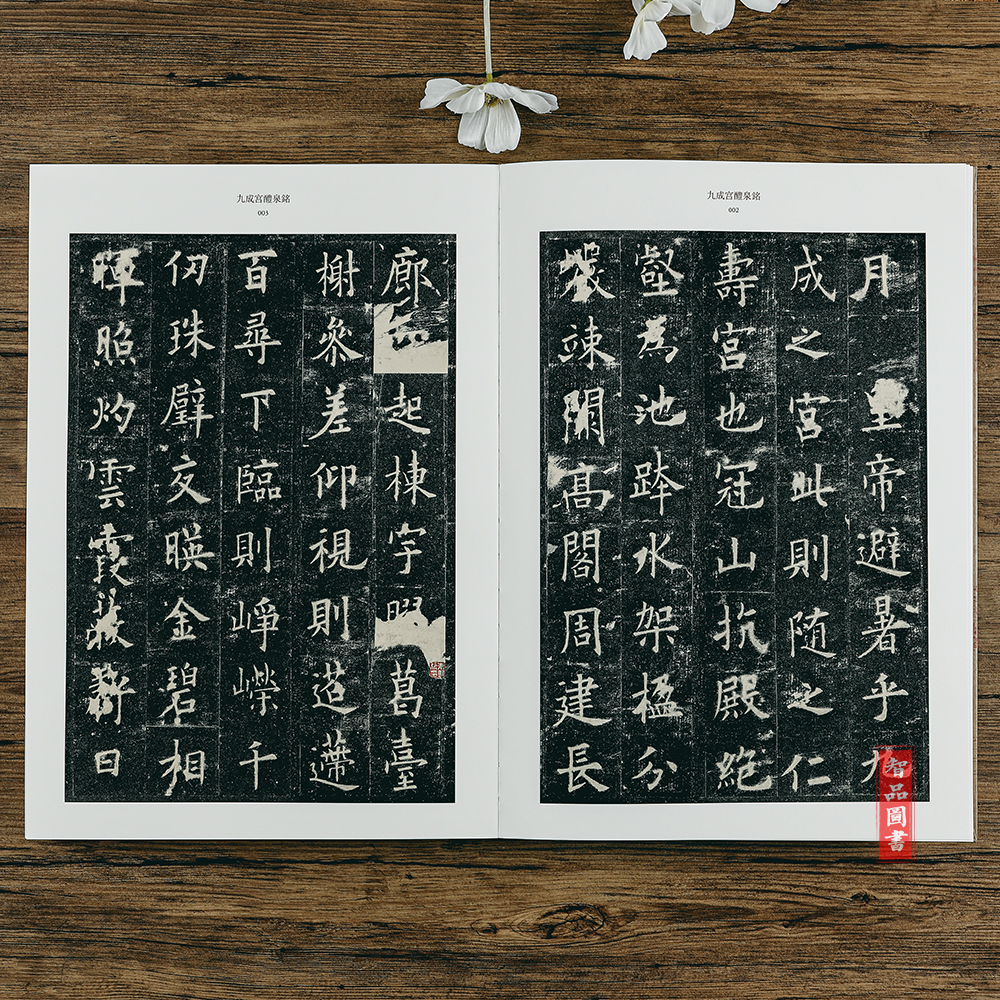 九成宮醴泉銘
002
月皇帝避暑乎九
成之宮此則随之仁
壽宮也冠山抗殿絕
壑為池跨水架楹分
巖竦闕高閣周建長
九成宮醴泉銘
003
廊起棟宇葛臺
榭參差仰視則迢遰
百尋下臨則崢嶸千
仞珠璧交暎金碧相
暉照灼雲霞蔽虧日
智品圖書